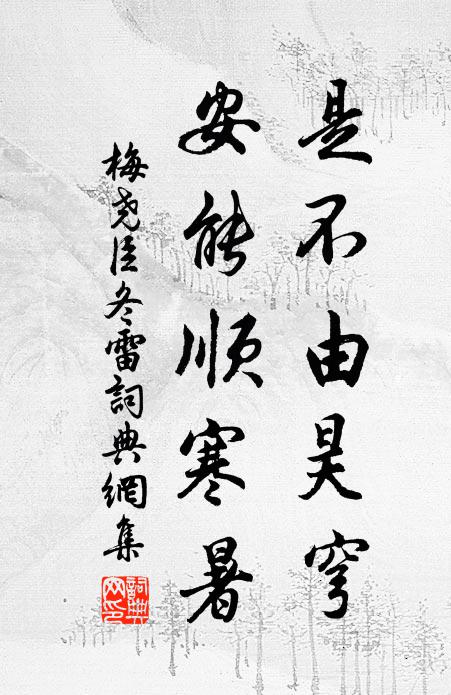 是不由昊穹
安能順寒暑
梅尧臣冬雷詞典網集
詞典網印